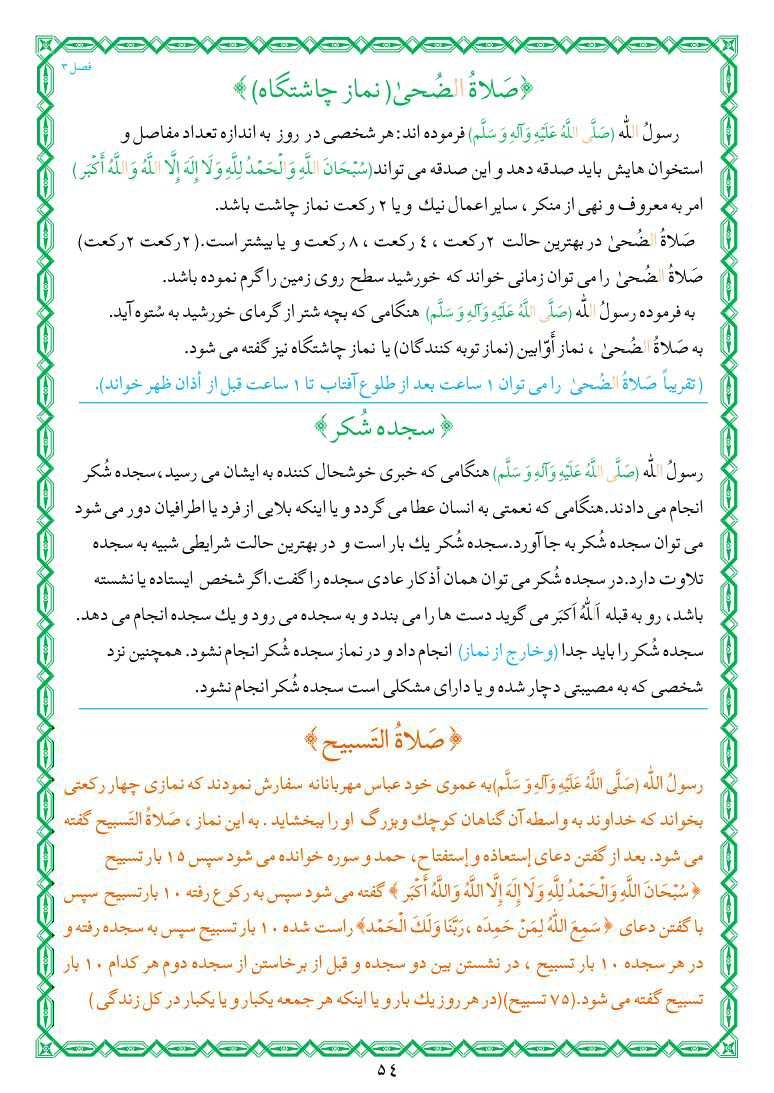 فصل ۳
﴿صَلاةُ الضُحیٰ( نماز چاشتگاه)﴾
رسولُ الله (صَلَّی اللَّهُ عَلَیْهِ وَآلِهِ وَ سَلَّم) فرموده اند: هر شخصی در روز به اندازه تعداد مفاصل و
استخوان هایش باید صدقه دهد و این صدقه می تواند(سُبْحَانَ اللَّهِ وَالْحَمْدُ لِلَّهِ وَلَا إِلَهَ إِلَّا اللَّهُ وَاللَّهُ أَكْبَر )
امر به معروف و نهی از منکر ، سایر اعمال نیك و یا ۲ رکعت نماز چاشت باشد.
صَلاةُ الضُحیٰ در بهترین حالت ۲رکعت ، ٤ رکعت ، ۸ رکعت و یا بیشتر است.( ۲رکعت ۲رکعت)
صَلاةُ الضُحیٰ را می توان زمانی خواند که خورشید سطح روی زمین را گرم نموده باشد.
به فرموده رسولُ الله (صَلَّی اللَّهُ عَلَیْهِ وَآلِهِ وَ سَلَّم) هنگامی که بچه شتر از گرمای خورشید به سُتوه آید.
به صَلاةُ الضُحیٰ ، نماز أَوّابین (نماز توبه کنندگان) یا نماز چاشتگاه نیز گفته می شود.
( تقریباً صَلاةُ الضُحیٰ را می توان ۱ ساعت بعد از طلوع آفتاب تا ۱ ساعت قبل از أذان ظهر خواند).
﴿ سجده شُکر ﴾
رسولُ الله (صَلَّی اللَّهُ عَلَیْهِ وَآلِهِ وَ سَلَّم) هنگامی که خبری خوشحال کننده به ایشان می رسید، سجده شُکر
انجام می دادند.هنگامی که نعمتی به انسان عطا می گردد و یا اینکه بلایی از فرد یا اطرافیان دور می شود
می توان سجده شُکر به جا آورد.سجده شُکر یك بار است و در بهترین حالت شرایطی شبیه به سجده
تلاوت دارد.در سجده شُکر می توان همان أذکار عادی سجده را گفت.اگر شخص ایستاده یا نشسته
باشد، رو به قبله اَللهُ اَکبَر می گوید دست ها را می بندد و به سجده می رود و یك سجده انجام می دهد.
سجده شُکر را باید جدا (وخارج از نماز) انجام داد و در نماز سجده شُکر انجام نشود. همچنین نزد
شخصی که به مصیبتی دچار شده و یا دارای مشکلی است سجده شُکر انجام نشود.
﴿ صَلاةُ التَسبیح ﴾
رسولُ الله (صَلَّی اللَّهُ عَلَیْهِ وَآلِهِ وَ سَلَّم)به عموی خود عباس مهربانانه سفارش نمودند که نمازی چهار رکعتی
بخواند که خداوند به واسطه آن گناهان کوچك وبزرگ او را ببخشاید . به این نماز ، صَلاةُ التَسبیح گفته
می شود. بعد از گفتن دعای إستعاذه و إستفتاح، حمد و سوره خوانده می شود سپس ۱۵ بار تسبیح
﴿ سُبْحَانَ اللَّهِ وَالْحَمْدُ لِلَّهِ وَلَا إِلَهَ إِلَّا اللَّهُ وَاللَّهُ أَكْبَر ﴾ گفته می شود سپس به رکوع رفته ۱۰ بارتسبیح سپس
با گفتن دعای ﴿ سَمِعَ اللهُ لِمَنْ حَمِدَه ،رَبَّنَا وَلَكَ الْحَمْد﴾ راست شده ۱۰ بار تسبیح سپس به سجده رفته و
در هر سجده ۱۰ بار تسبیح ، در نشستن بین دو سجده و قبل از برخاستن از سجده دوم هر کدام ۱۰ بار
تسبیح گفته می شود.(۷۵ تسبیح)(در هر روز یك بار و یا اینکه هر جمعه یکبار و یا یکبار در کل زندگی )
۵٤